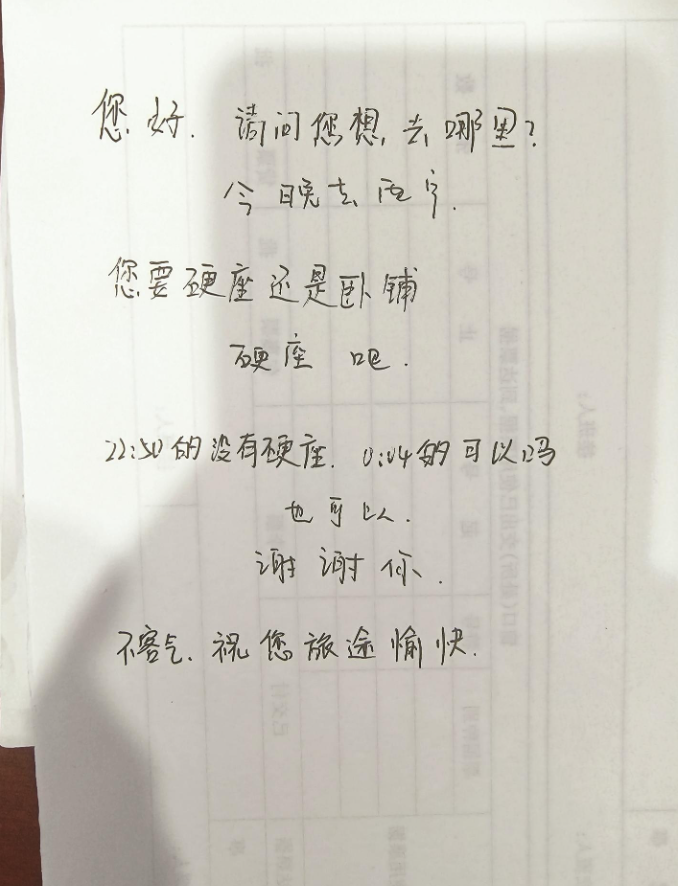 您好. 请问您想去哪里?
今晚去西宁.
您要硬座还是卧铺
硬座吧.
22:50的没有硬座. 0:04的可以吗
也可以.
谢谢你.
不客气. 祝您旅途愉快.